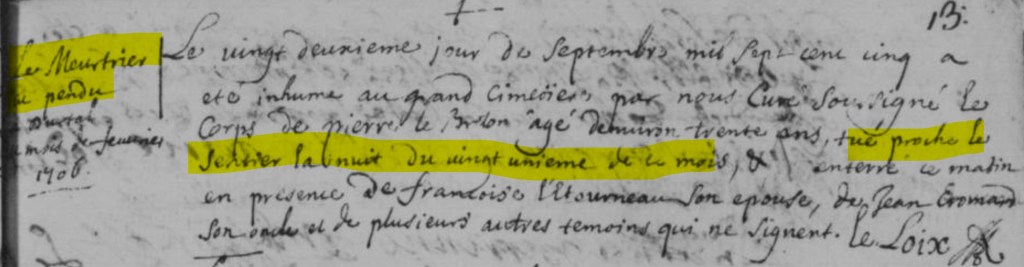 13.
Le vingt deuxieme jour de Septembre mil sept cent cinq a
eté inhumé au grand Cimetiere par nous Curé Soussigné le
Corps de pierre le Breton agé denuiron trente ans, tué proche le
Sentier la nuit du vingt unieme de ce mois, & enterré ce matin
en presence de francoise l'Etourneau Son epouse, de Jean
Son oncle et de plusieurs autres temoins qui ne Signent. le Loix
le Meurtrier
pendu
a Durtal
mois de feurier
1706.